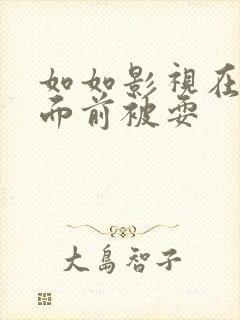 如如影視在
而前被耍
大島智子